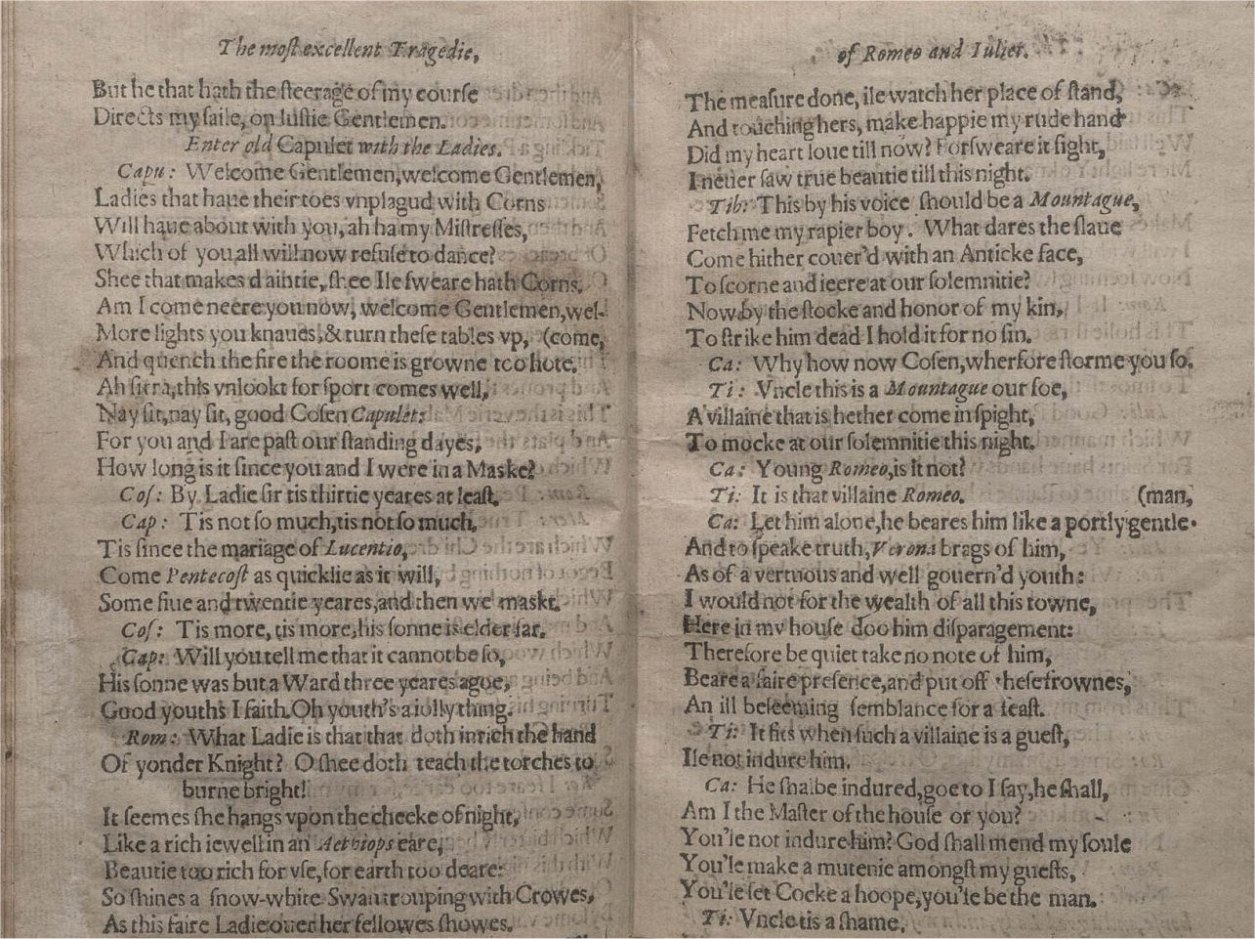 The moſt excellent Tragedie,
But he that hath the ſteerage of my courſe
Directs my ſaile, on luſtie Gentlemen.
Enter old Capulet with the Ladies.
Capu: Welcome Gentlemen, welcome Gentlemen,
Ladies that haue their toes vnplagud with Corns
Will haue about with you, ah ha my Miſtreſſes,
Which of you all will now refuſe to dance?
Shee that makes daintie, ſhee Ile ſweare hath Corns.
Am I come neere you now, welcome Gentlemen, wel-
More lights you knaues, & turn theſe tables vp, (come,
And quench the fire the roome is growne too hote.
Ah ſirra, this vnlookt for ſport comes well,
Nay ſit, nay ſit, good Coſen Capulet:
For you and I are paſt our ſtanding dayes,
How long is it ſince you and I were in a Maske?
Coſ: By Ladie ſir tis thirtie yeares at leaſt.
Cap: Tis not ſo much, tis not ſo much,
Tis ſince the mariage of Lucentio,
Come Pentecoſt as quicklie as it will,
Some fiue and twentie yeares, and then we maskt.
Coſ: Tis more, tis more, his ſonne is elder far.
Cap: Will you tell me that it cannot be ſo,
His ſonne was but a Ward three yeares agoe,
Good youths I faith. Oh youth's a iolly thing.
Rom: What Ladie is that that doth inrich the hand
Of yonder Knight? O ſhee doth teach the torches to
burne bright!
It ſeemes ſhe hangs vpon the cheeke of night,
Like a rich iewell in an Aethiops eare,
Beautie too rich for vſe, for earth too deare:
So ſhines a ſnow-white Swan trouping with Crowes,
As this faire Ladie ouer her fellowes ſhowes.
of Romeo and Iuliet.
The meaſure done, ile watch her place of ſtand,
And touching hers, make happie my rude hand
Did my heart loue till now? Forſweare it ſight,
I neuer ſaw true beautie till this night.
Tib: This by his voice ſhould be a Mountague,
Fetch me my rapier boy. What dares the ſlaue
Come hither couer'd with an Anticke face,
To ſcorne and ieere at our ſolemnitie?
Now by the ſtocke and honor of my kin,
To ſtrike him dead I hold it for no ſin.
Ca: Why how now Coſen, wherfore ſtorme you ſo.
Ti: Vncle this is a Mountague our foe,
A villaine that is hether come in ſpight,
To mocke at our ſolemnitie this night.
Ca: Young Romeo, is it not?
Ti: It is that villaine Romeo. (man,
Ca: Let him alone, he beares him like a portly gentle-
And to ſpeake truth, Verona brags of him,
As of a vertuous and well gouern'd youth:
I would not for the wealth of all this towne,
Here in my houſe doo him diſparagement:
Therefore be quiet take no note of him,
Beare a faire preſence, and put off theſe frownes,
An ill beſeeming ſemblance for a feaſt.
Ti: It fits when ſuch a villaine is a gueſt,
Ile not indure him.
Ca: He ſhalbe indured, goe to I ſay, he ſhall,
Am I the Maſter of the houſe or you?
You'le not indure him? God ſhall mend my ſoule
You'le make a mutenie amongſt my gueſts,
You'le ſet Cocke a hoope, you'le be the man.
Ti: Vncle tis a ſhame.